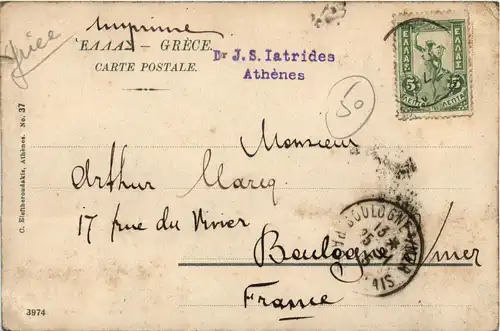 Imprimé
ΕΛΛΑΣ – GRÈCE
CARTE POSTALE.
Dr J. S. Iatrides
Athènes
ΕΛΛΑΣ
ΕΛΛΑΣ
5
5
ΛΕΠΤΑ
ΛΕΠΤΑ
50
Monsieur
Arthur Marcq
17 rue du Vivier
Boulogne s/mer
France
BOULOGNE-S-MER
PAS
AIS
C. Eleftheroudakis, Athènes. No. 37
3974